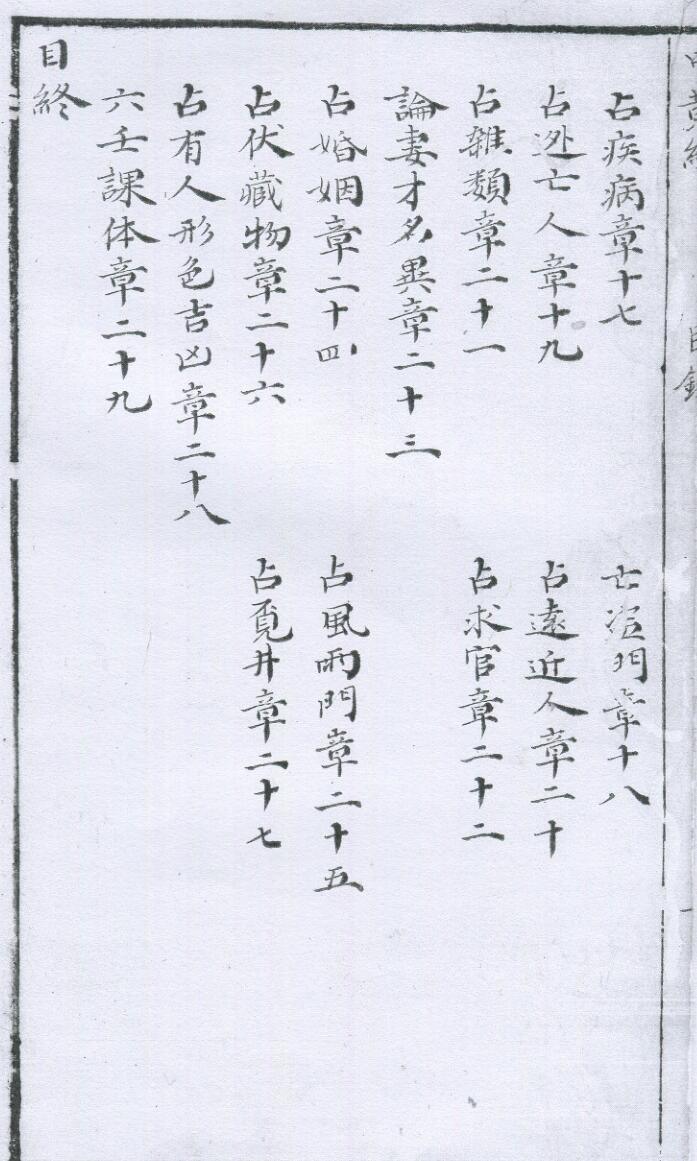 占疾病章十七 亡盗門章十八
占逃亡人章十九 占遠近人章二十
占雜類章二十一 占求官章二十二
論妻才名異章二十三
占婚姻章二十四 占風雨門章二十五
占伏藏物章二十六 占覓井章二十七
占有人形色吉凶章二十八
六壬課体章二十九
目終